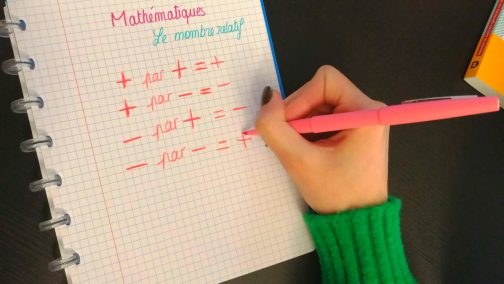 Mathématiques
Le nombre relatif
+ par + = +
+ par - = -
- par + = -
- par - = +